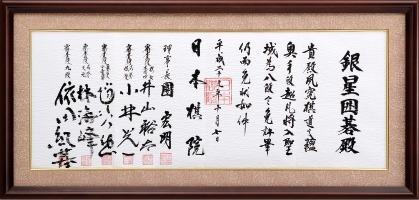 銀星囲碁殿
貴殿夙究棋道之蘊
奥手段超凡将入聖
域為八段令免許畢
仍而免状如件
平成二十三年十月七日
日本棋院
理事長 團 宏明
井山裕太
小林光一
林海峰
依田紀基